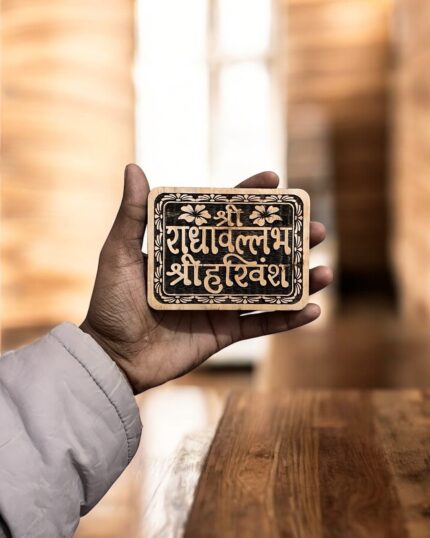 श्री
राधावल्लंभ
श्रीहरिवंश